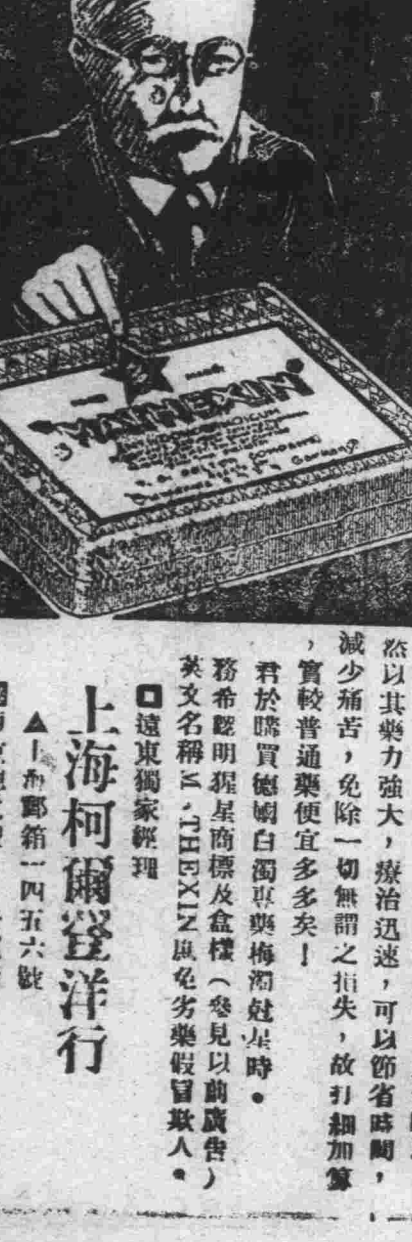 MATHEXIN
Germany
然以其藥力強大，療治迅速，可以節省時間，
減少痛苦，免除一切無謂之損失，故打細加算
，實較普通藥便宜多多矣！
君於購買德國白濁專藥梅濁尅星時●
務希認明猩星商標及盒樣（參見以前廣告）
英文名稱M、THEXIN庶免劣藥假冒欺人●
遠東獨家經理
上海柯爾登洋行
▲上海郵箱一四五六號